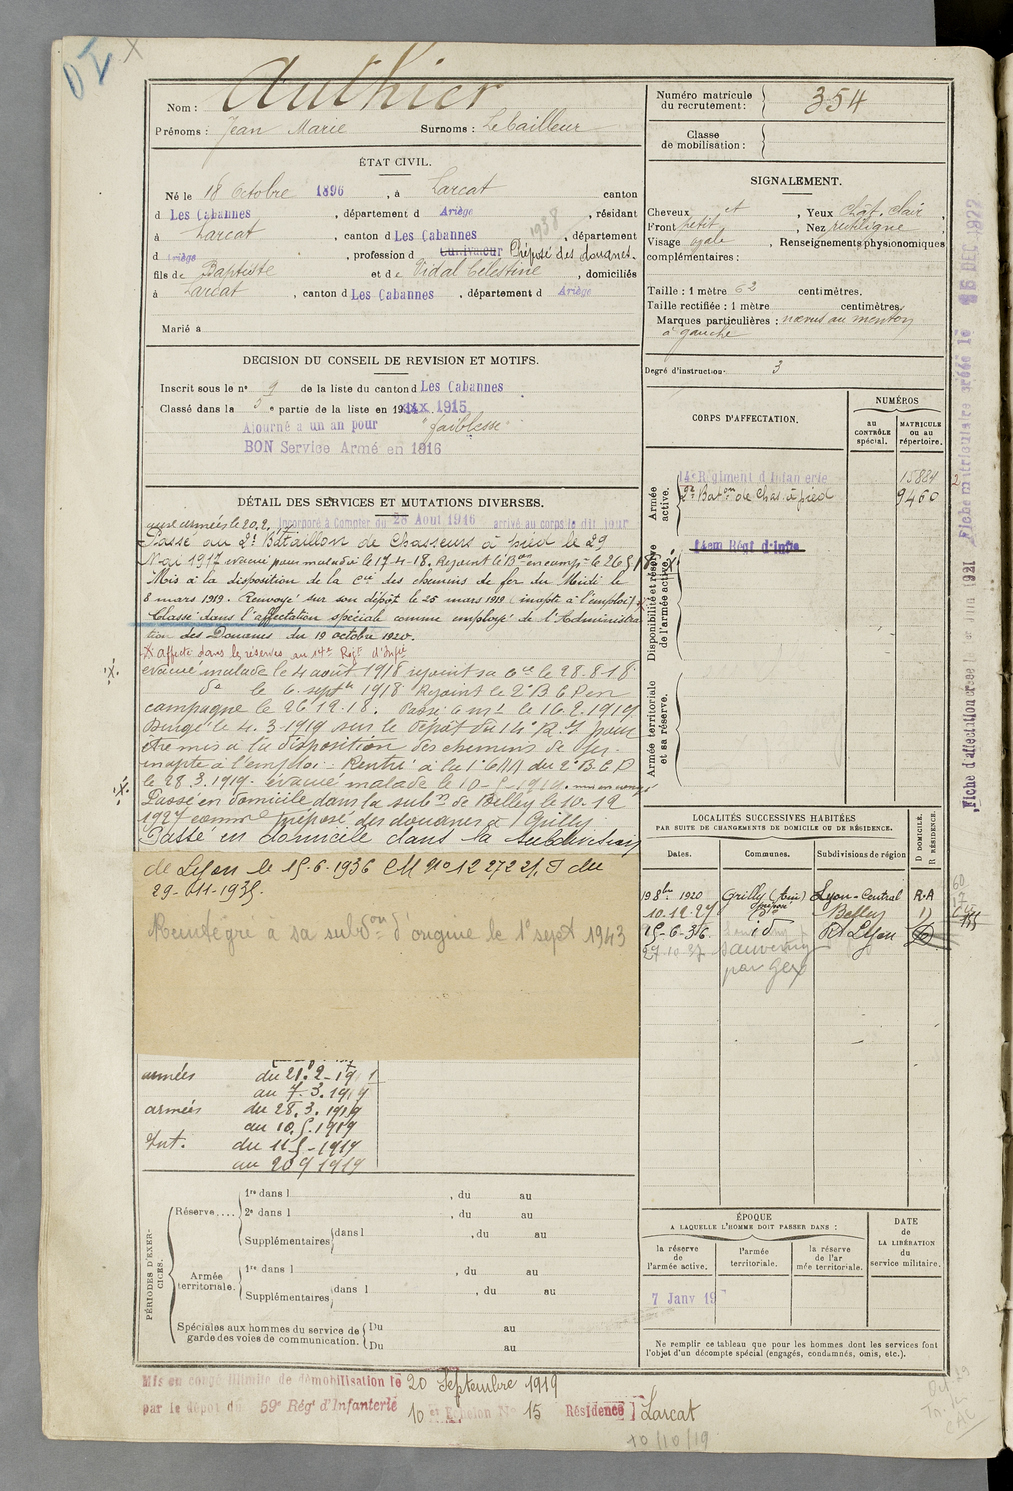 Nom : Authier
Prénoms : Jean Marie Surnoms : Lebailleur
ÉTAT CIVIL.
Né le 18 Octobre 1896, à Larcat canton
d Les Cabannes, département d Ariège, résidant
à Larcat, canton d Les Cabannes, département
1938
d Ariège, profession d Cultivateur Préposé des douanes.
fils de Baptiste et de Vidal Célestine, domiciliés
à Larcat, canton d Les Cabannes, département d Ariège
Marié à
DECISION DU CONSEIL DE REVISION ET MOTIFS.
Inscrit sous le n° 9 de la liste du canton d Les Cabannes
Classé dans la 5e partie de la liste en 1915
Ajourné a un an pour "faiblesse"
BON Service Armé en 1916
DÉTAIL DES SERVICES ET MUTATIONS DIVERSES.
aux armées le 20.2. Incorporé à Compter du 28 Aout 1916 arrivé au corps le dit jour
Passé au 2e Bataillon de Chasseurs à pied le 29
Mai 1917 evacué pour maladie le 17-4-18. Rejoint le Bon en camp. le 26 5 18
Mis à la disposition de la Cie des chemins de fer du Midi le
8 mars 1919. Renvoyé sur son dépôt le 25 mars 1919 (inapte à l'emploi)
Classé dans l'affectation spéciale comme employé de l'Administra
tion des Douanes du 19 octobre 1920.
X affecté dans les réserves au 14e Régt d'Infie
évacué malade le 4 août 1918 rejoint sa Cie le 28.8.18
do le 6. septe 1918 Rejoint le 2e B C P en
campagne le 26 12.18. Passé le 16.2.1919
Dirigé le 4.3.1919 sur le dépôt du 14e R.I pour
être mis à la disposition des chemins de fer.
inapte à l'emploi. Rentré à la du 2e B.C.P
le 28.3.1919. évacué malade le 10-5-1919.
Passé en domicile dans la subon de Belley le 10.12
1927 comme préposé des douanes à Grilly
Passé en domicile dans la subdivision
de Lyon le 15-6-1936 CM No 12 272 2/. I du
29-11-1935.
Réintégré à sa subdon d'origine le 1er sept 1943
armées du 21.2-19
au 7.3.1919
armées du 28.3.1919
au 10.5.1919
Int. du 11 5-1919
au 20 9 1919
PÉRIODES D'EXERCICES.
Réserve.... 1re dans l , du au
2e dans l , du au
Supplémentaires dans l , du au
Armée territoriale. 1re dans l , du au
Supplémentaires dans l , du au
Spéciales aux hommes du service de garde des voies de communication. Du au
Du au
Mis en congé illimité de démobilisation le 20 Septembre 1919
par le dépôt du 59e Régt d'Infanterie 10e Echelon No 15 Résidence Larcat
10/10/19
Numéro matricule du recrutement : 354
Classe de mobilisation :
SIGNALEMENT.
Cheveux et, Yeux chat. clair,
Front petit, Nez rectiligne,
Visage ovale, Renseignements physionomiques
complémentaires :
Taille : 1 mètre 62 centimètres.
Taille rectifiée : 1 mètre centimètres.
Marques particulières : nœvus au menton
à gauche
Degré d'instruction 3
CORPS D'AFFECTATION.
NUMÉROS
au CONTRÔLE spécial.
MATRICULE ou au répertoire.
Armée active.
14e Régiment d'Infanterie 15884
2e Baton de Chas. à pied 9460
Disponibilité et réserve de l'armée active.
14em Régt d'Infie
Armée territoriale et sa réserve.
LOCALITÉS SUCCESSIVES HABITÉES
PAR SUITE DE CHANGEMENTS DE DOMICILE OU DE RÉSIDENCE.
Dates. Communes. Subdivisions de région D DOMICILE. R RÉSIDENCE.
19 8bre 1920 Grilly (Ain) Lyon-Central R.A
10.12.27 do Belley D
15-6-36 id Rt Lyon
27.10.37 Sauverny
par Gex
ÉPOQUE
A LAQUELLE L'HOMME DOIT PASSER DANS :
la réserve de l'armée active.
l'armée territoriale.
la réserve de l'armée territoriale.
DATE DE LA LIBÉRATION du service militaire.
7 Janv 19
Ne remplir ce tableau que pour les hommes dont les services font
l'objet d'un décompte spécial (engagés, condamnés, omis, etc.).